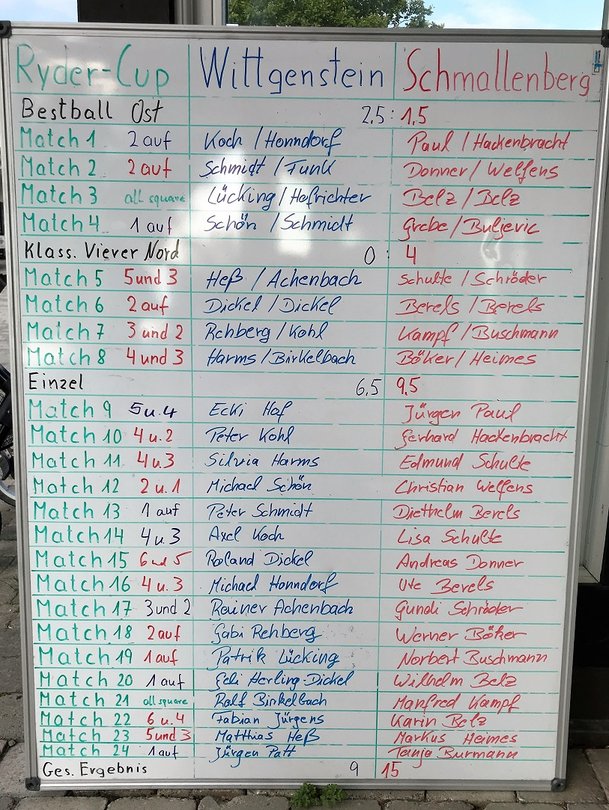 Ryder-Cup Wittgenstein Schmallenberg
Bestball Ost 2,5 : 1,5
Match 1 2 auf Koch / Honndorf Paul / Hackenbracht
Match 2 2 auf Schmidt / Funk Donner / Welfens
Match 3 all square Lücking / Hofrichter Belz / Belz
Match 4 1 auf Schön / Schmidt Grebe / Buljevic
Klass. Vierer Nord 0 : 4
Match 5 5 und 3 Heß / Achenbach Schulte / Schröder
Match 6 2 auf Dickel / Dickel Berels / Berels
Match 7 3 und 2 Rehberg / Kohl Kampf / Buschmann
Match 8 4 und 3 Harms / Birkelbach Böker / Heimes
Einzel 6,5 9,5
Match 9 5 u. 4 Ecki Hof Jürgen Paul
Match 10 4 u. 2 Peter Kohl Gerhard Hackenbracht
Match 11 4 u 3 Silvia Harms Edmund Schulte
Match 12 2 u. 1 Michael Schön Christian Welfens
Match 13 1 auf Peter Schmidt Diethelm Berels
Match 14 4 u 3 Axel Koch Lisa Schulte
Match 15 6 und 5 Roland Dickel Andreas Donner
Match 16 4 u. 3 Michael Honndorf Ute Berels
Match 17 3 und 2 Rainer Achenbach Gundi Schröder
Match 18 2 auf Gabi Rehberg Werner Böker
Match 19 1 auf Patrik Lücking Norbert Buschmann
Match 20 1 auf Feli Herling-Dickel Wilhelm Belz
Match 21 all square Ralf Birkelbach Manfred Kampf
Match 22 6 u. 4 Fabian Jürgens Karin Belz
Match 23 5 und 3 Matthias Heß Markus Heimes
Match 24 1 auf Jürgen Patt Tanja Burmann
Ges. Ergebnis 9 15